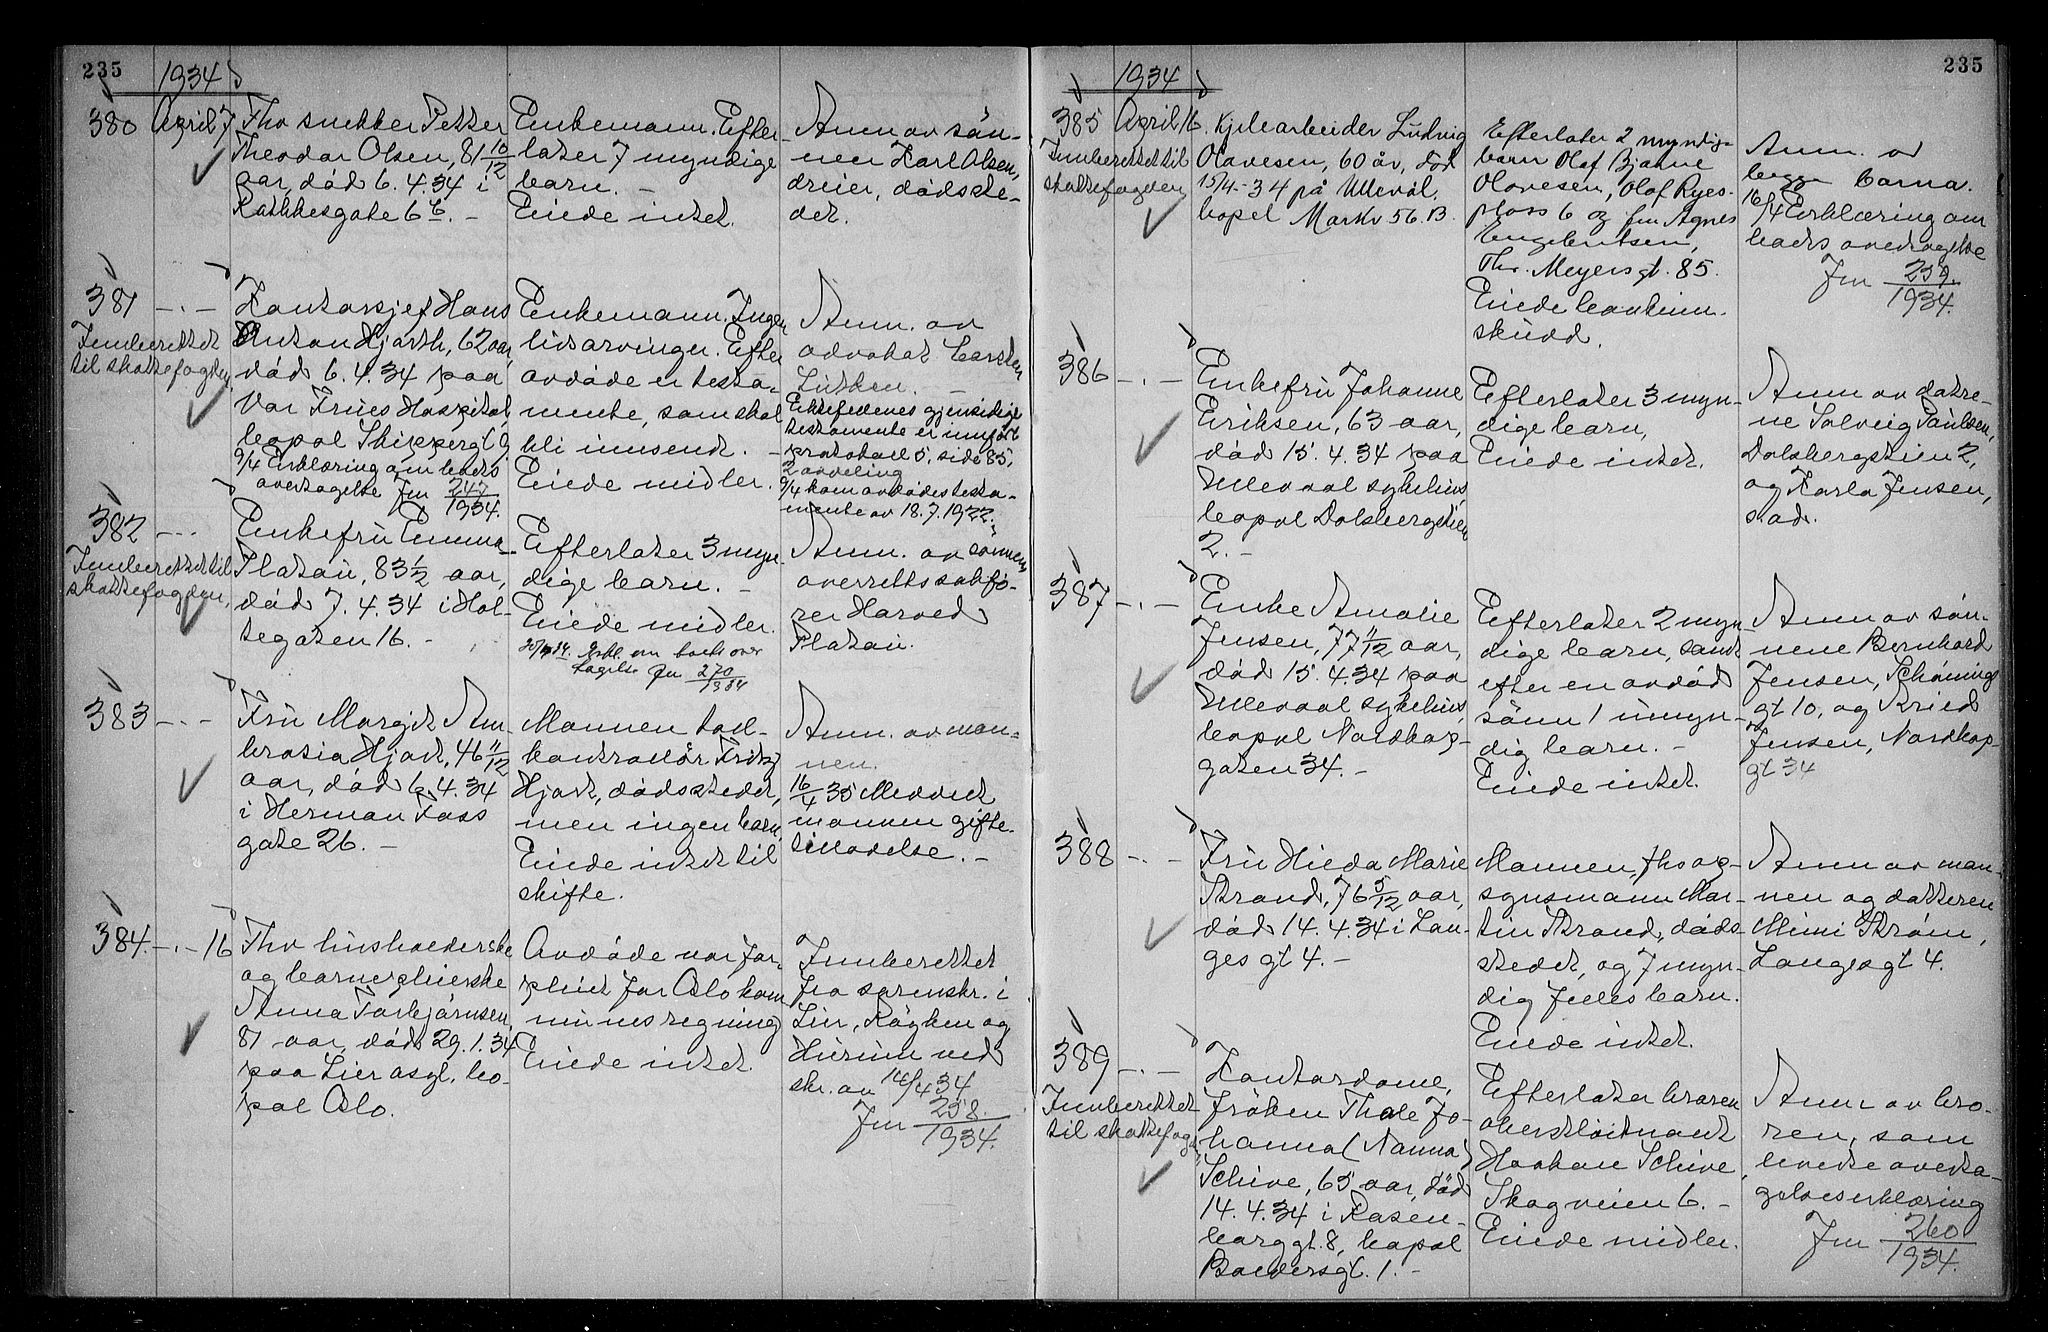 235
1934
380
April 7
Fhv snekker Petter
Theodor Olsen, 81 10/12
aar, død 6.4.34 i
Rathkesgate 6
Enkemann. Efter-
later 7 myndige
barn. -
Eiede intet.
Anm. av søn-
nen Karl Olsen,
dreier, dødsste-
det.
381
-.-
Innberettet
til skattefogden
Kontorsjef Hans
Anton Hjorth, 62 aar,
død 6.4.34 paa
Vor Frues Hospital,
bopel Skippergt 9
9/4 Erklæring om boets
overtagelse Jnr 247/1934.
Enkemann. Ingen
livsarvinger. Efter
avdøde er testa-
mente, som skal
bli innsendt. -
Eiede midler.
Anm. av
advokat Carsten
Lütken. -
Ektefellenes gjensidige
testamente er innført
protokoll 5, side 85,
2 avdeling
9/4 kom avdødes testa-
mente av 18.7.1922.
382
-.-
Innberettet til
skattefogden.
Enkefru Emma
Platou, 83 1/2 aar,
død 7.4.34 i Hol-
tegaten 16. -
Efterlater 3 myn-
dige barn. -
Eiede midler.
Erkl. om boets over
tagelse Jnr 270/1934
Anm. av sønnen
overrettssakfø-
rer Harved
Platou.
383
-.-
Fru Margit Am-
brosia Hjort, 46 11/12
aar, død 6.4.34
i Herman Foss
gate 26. -
Mannen toll-
kontrollør Fritz
Hjort, dødsstedet,
men ingen barn.
Eiede intet til
skifte.
Anm. av man-
nen.
16/4 35 Meddelt
mannen gifte-
tillatelse. -
384.
-.- 16
Fhv husholderske
og barnepleierske
Anna Torbjørnsen,
81 aar, død 29.1.34
paa Lier asyl, bo-
pel Oslo.
Avdøde var for-
pleiet for Oslo kom-
munes regning
Eiede intet.
Innberettet
fra sorenskr. i
Lier, Røyken og
Hurum ved
skr. av 14/4 34
Jnr 258./1934.
235
1934
385
April 16
Innberettet til
skattefogden
Kjelearbeider Ludvig
Olavesen, 60 år, død
15/4-34 på Ullevål.
bopel Markv 56.B.
Efterlater 2 myndige
barn Olaf Bjarne
Olavesen, Olaf Ryes-
plass 6 og fru Agnes
Engebretsen,
Thv. Meyersgt. 85.
Eiede
skudd.
Anm. av
begge barna.
16/4 Erklæring om
boets overtagelse
Jnr 259./1934.
386
-.-
Enkefru Johanne
Eriksen, 63 aar,
død 15.4.34 paa
Ullevaal sykehus,
bopel Dalsbergstien
2. -
Efterlater 3 myn-
dige barn,
Eiede intet.
Anm av døtre-
ne Solveig Paulsen,
Dalsbergstien 2,
og Karla Jensen,
stad.
387
-.-
Enke Amalie
Jensen, 77 1/12 aar,
død 15.4.34 paa
Ullevaal sykehus,
bopel Nordkap-
gaten 34. -
Efterlater 2 myn-
dige barn, samt
efter en avdød
sønn 1 umyn-
dig barn. -
Eiede intet.
Anm av søn-
nene Bernhard
Jensen, Schønings
gt 10, og
Jensen, Nordkap-
gt 34
388
-.-
Fru Hilda Marie
Strand, 76 5/12 aar,
død 14.4.34 i Lan-
ges gt 4. -
Mannen, fhv op-
synsmann Mar-
tin Strand, døds-
stedet, og 7 myn-
dig felles barn.
Eiede intet.
Anm av man-
nen og datteren
Mimi Strøm,
Langesgt 4.
389
-.-
Innberettet
til skattefogd
Kontordame,
frøken Thale Jo-
hanna (Nanna)
Schive, 65 aar, død
14.4.34 i Rosen-
borggt. 8, bopel
Baldersgt. 1. -
Efterlater broren
oberstløitnant
Haakon Schive,
Skogveien 6. -
Eiede midler.
Anm av bro-
ren, som
leverte overta-
gelseserklæring
Jnr 260/1934.